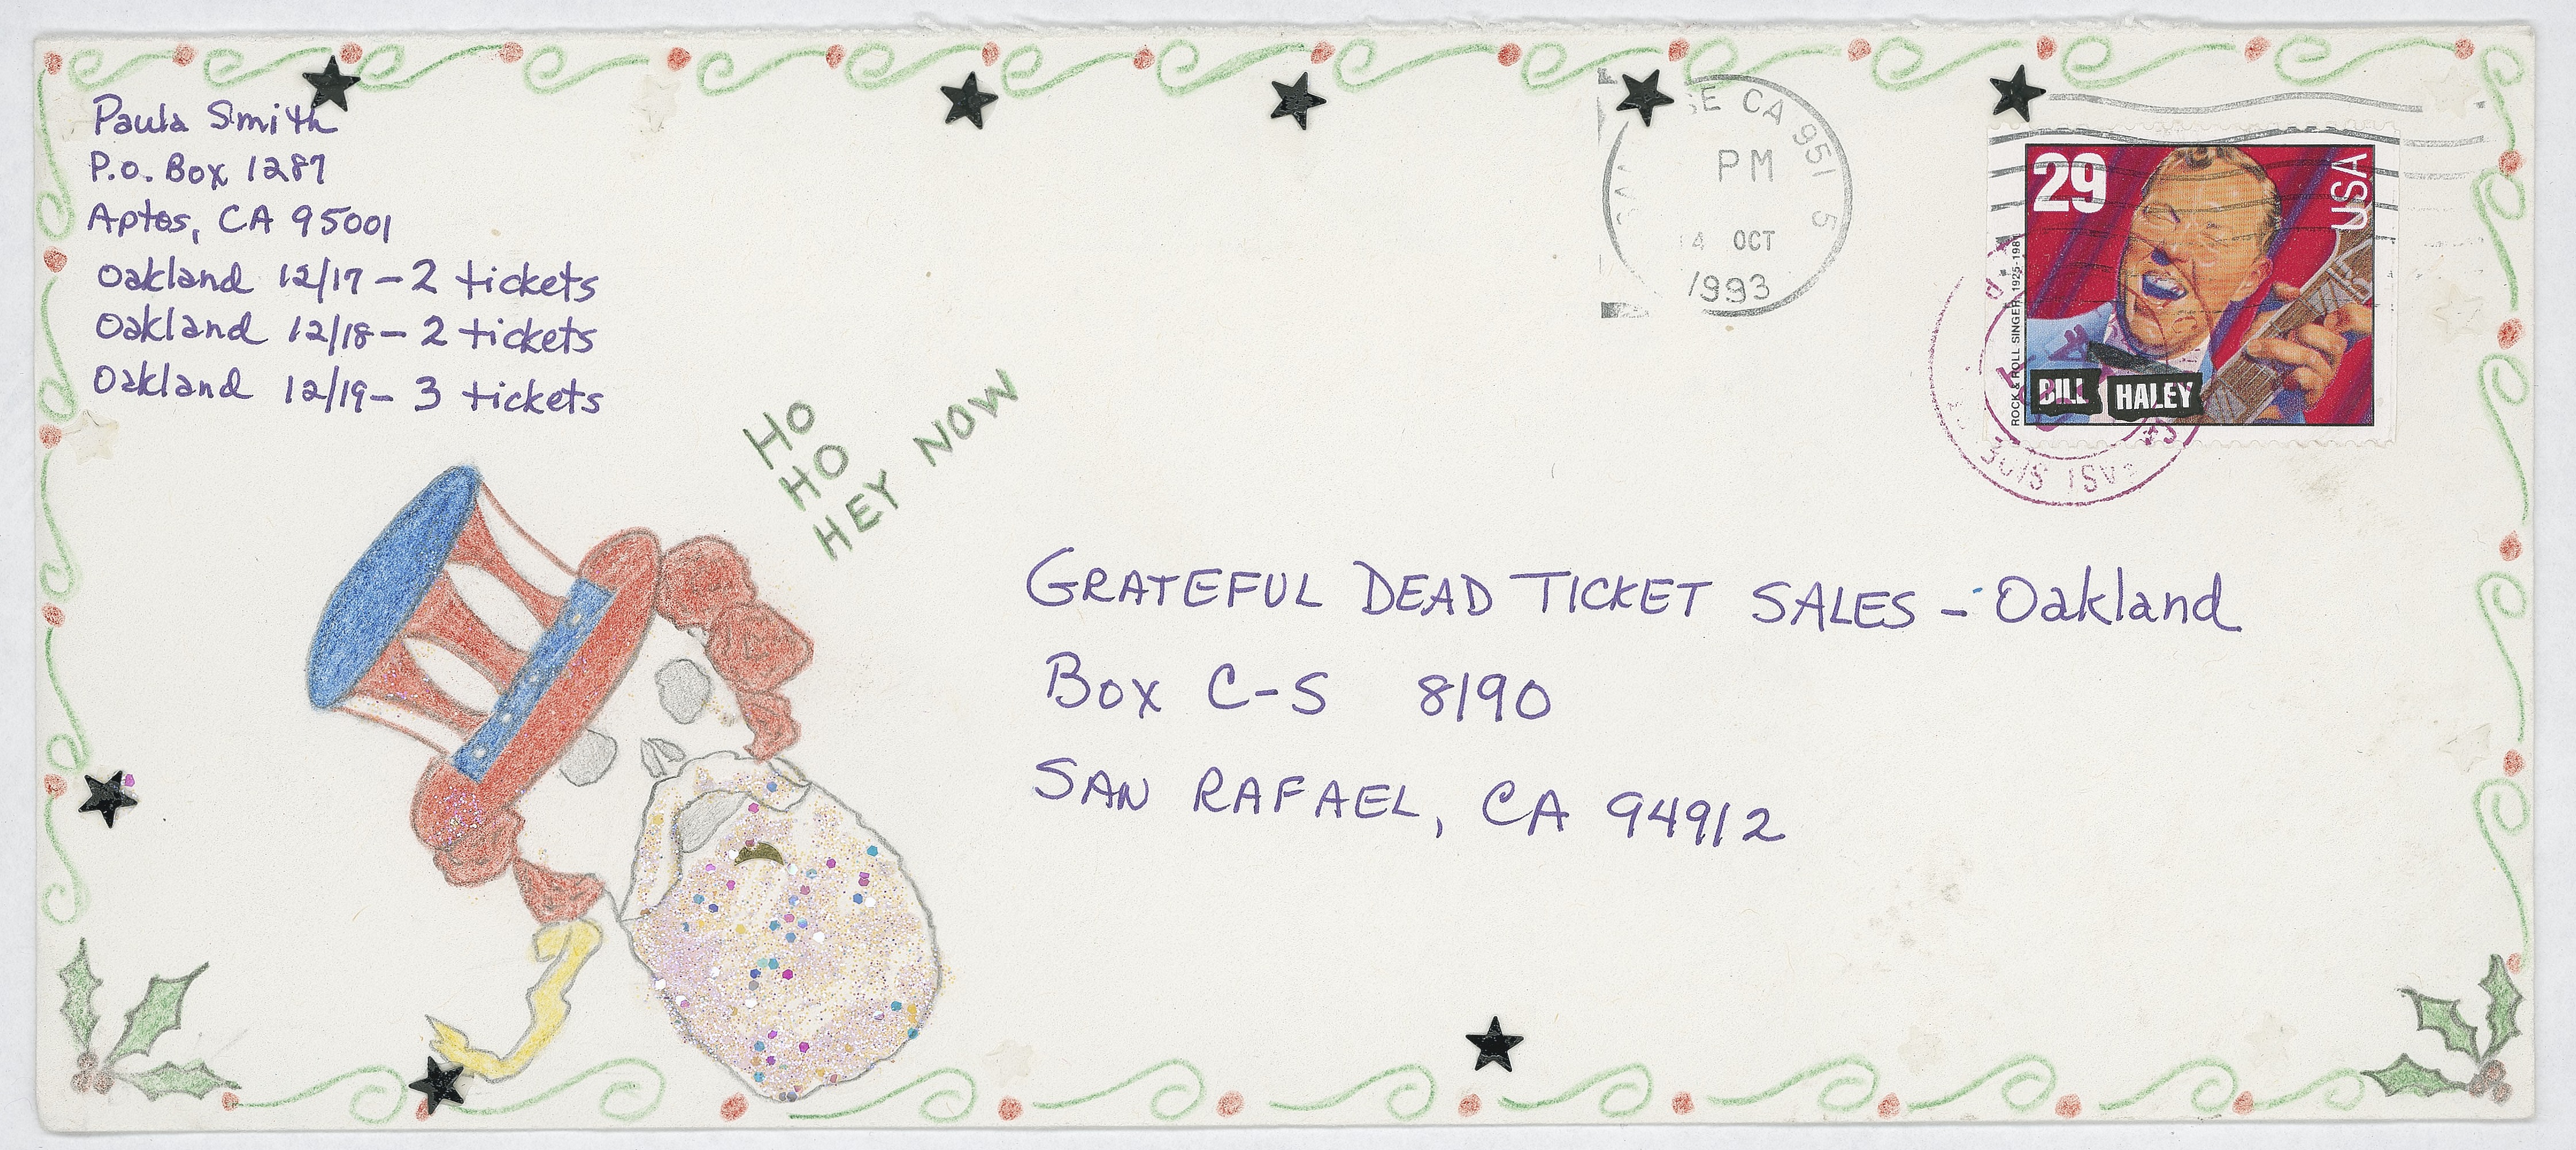 Paula Smith
P.O. Box 1287
Aptos, CA 95001
Oakland 12/17 - 2 tickets
Oakland 12/18 - 2 tickets
Oakland 12/19 - 3 tickets
HO
HO
HEY NOW
SE CA 951 5
PM
4 OCT
1993
29
USA
ROCK & ROLL SINGER, 1925-1981
BILL HALEY
GRATEFUL DEAD TICKET SALES - Oakland
Box C-S 8190
SAN RAFAEL, CA 94912